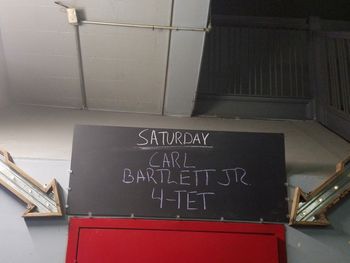 SATURDAY
CARL
BARTLETT JR.
4-TET